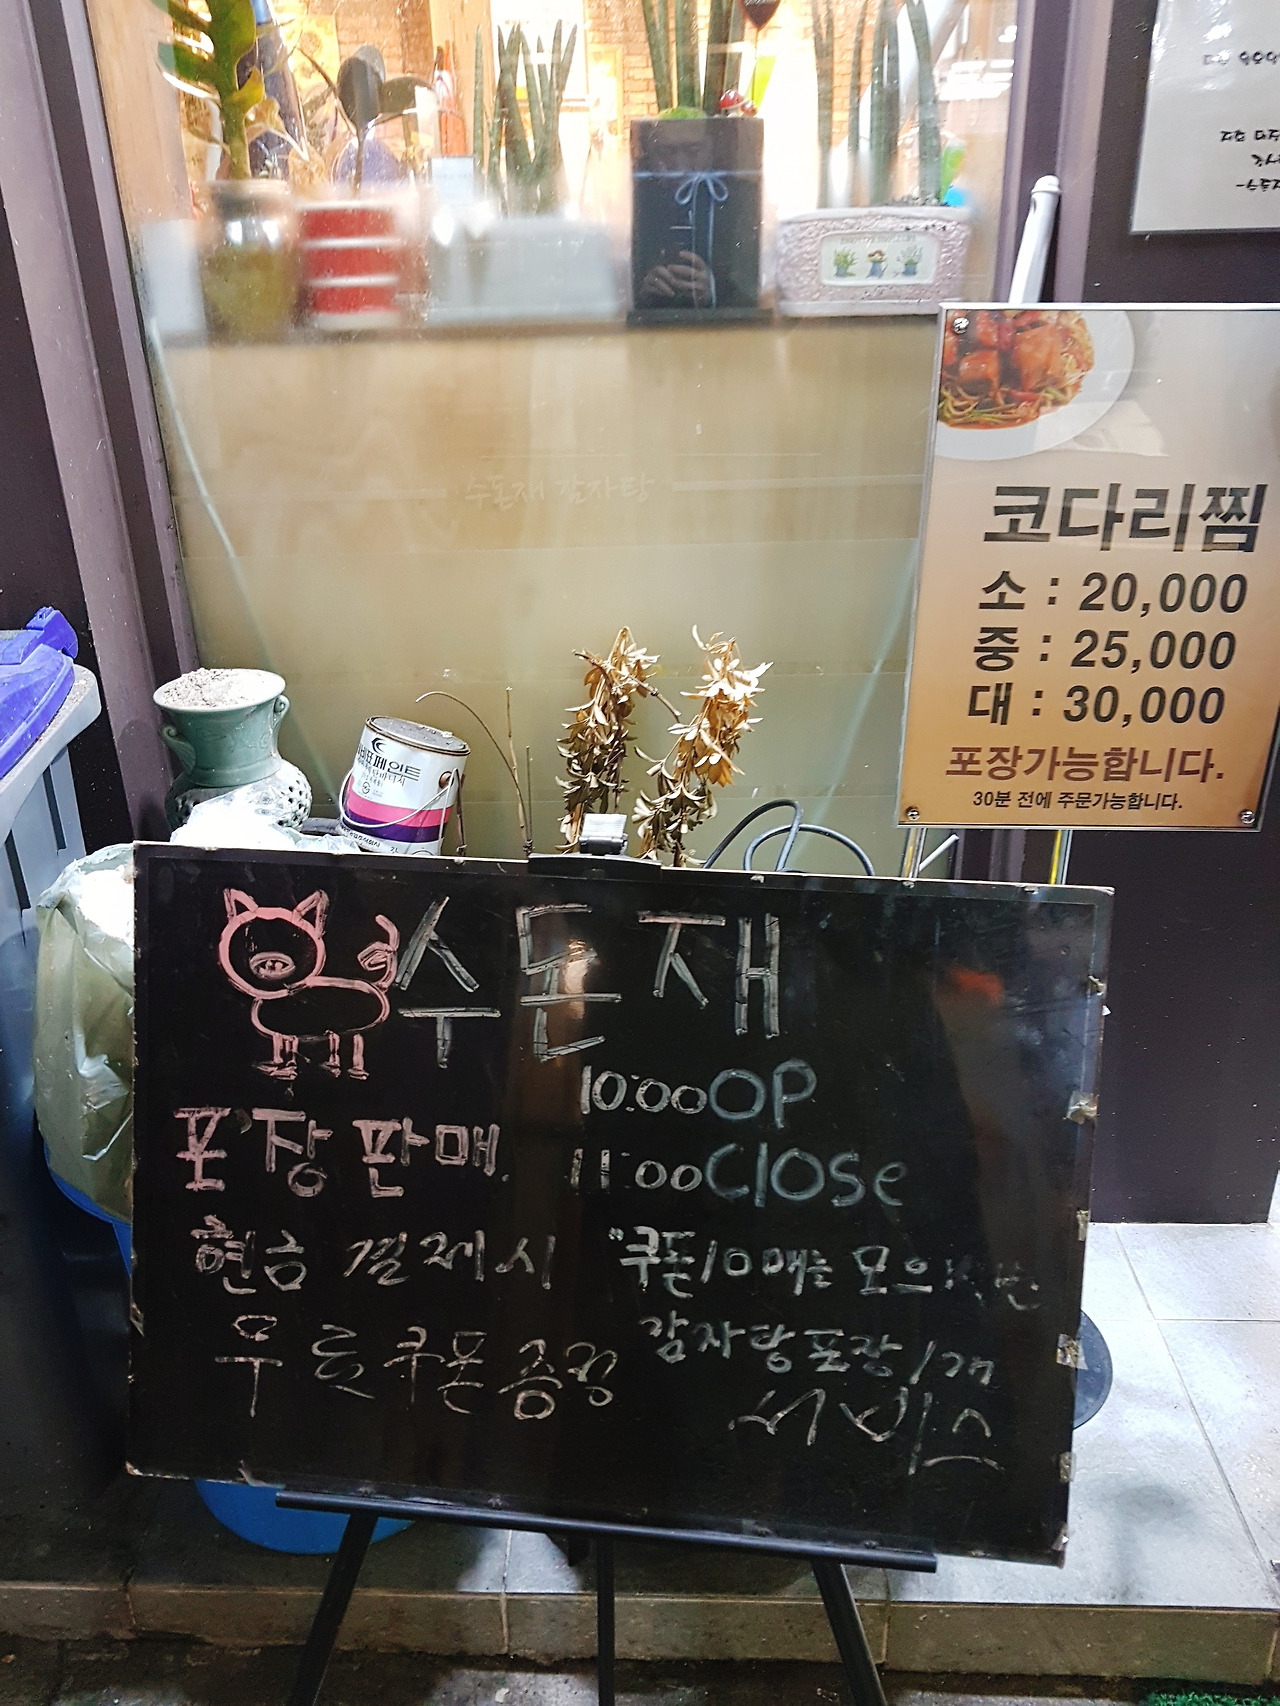 수돈재 감자탕
코다리찜
소 : 20,000
중 : 25,000
대 : 30,000
포장가능합니다.
30분 전에 주문가능합니다.
수돈재
10:00 OP
포장판매. 11:00 Close
현금 결제시
무료쿠폰증정
"쿠폰10매는 모으
감자탕포장1개
서비스